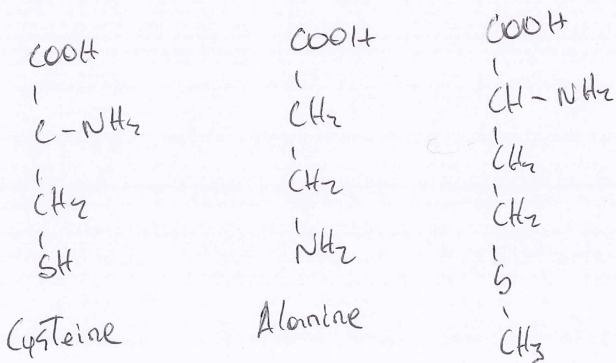 COOH
C-NH2
CH2
SH
Cysteine
COOH
CH2
CH2
NH2
Alanine
COOH
CH-NH2
CH2
CH2
S
CH3